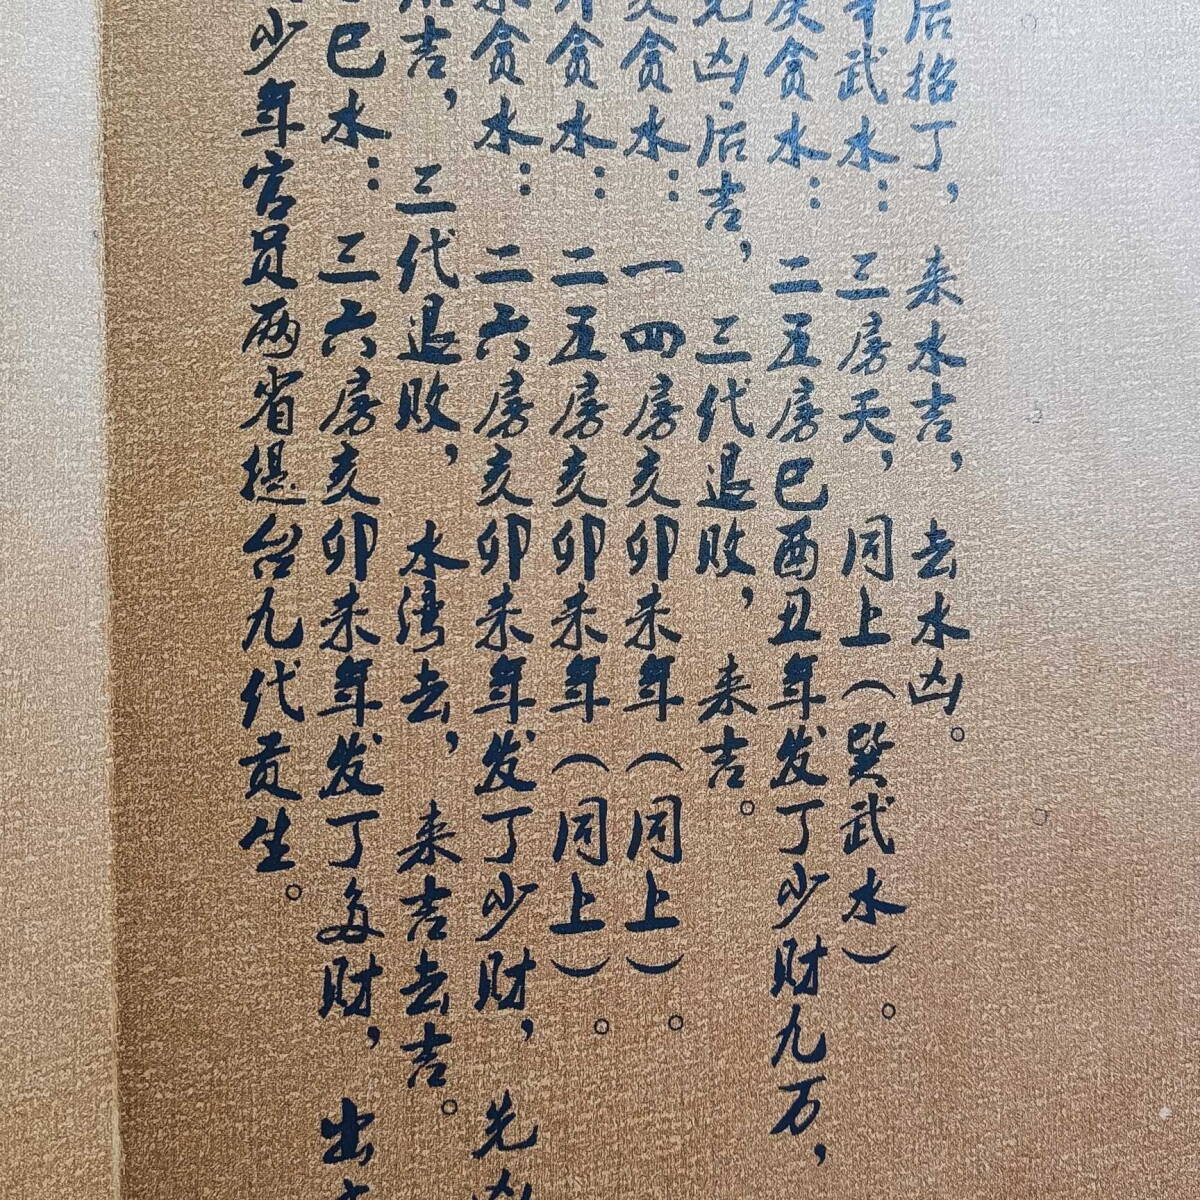 后招丁，来水吉，去水凶。
武水：三房天，同上（巽武水）。
贪水：二五房巳酉丑年发丁少财九万，
凶后吉，三代退败，来吉。
贪水：一四房亥卯未年（同上）。
贪水：二五房亥卯未年（同上）。
贪水：二六房亥卯未年发丁少财，先凶
吉，三代退败，水湾去，来吉去吉。
巳水：三六房亥卯未年发丁多财，出
少年官员两省提台九代贡生。